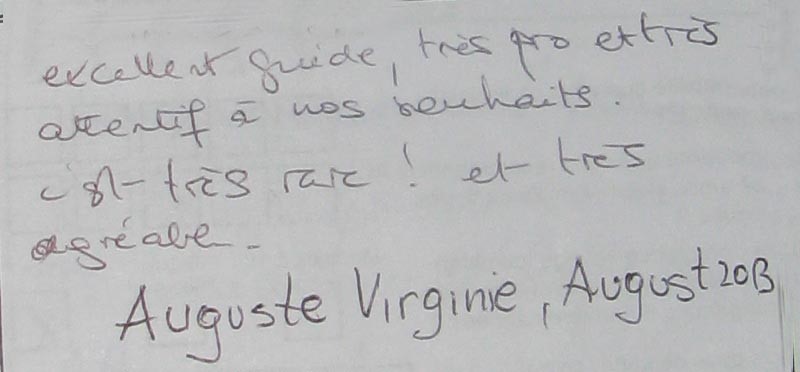 excellent guide, très pro et très
attentif à nos souhaits.
c'est très rare ! et très
agréable.
Auguste Virginie, August 2013